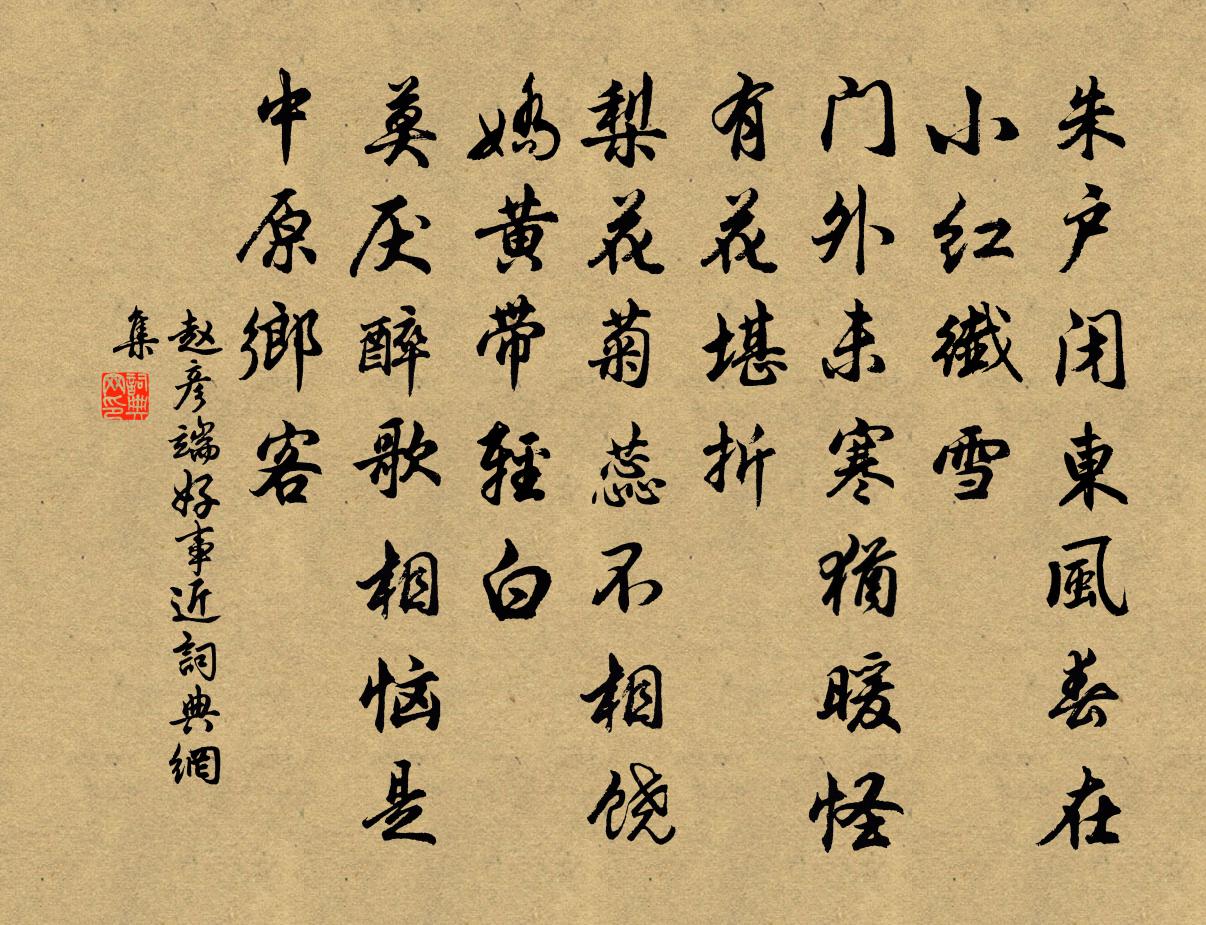 朱户闭東風春在
小红纖雪
门外未寒猶暖怪
有花堪折
梨花菊蕊不相饶
嬌黄带輕白
莫厌醉歌相恼是
中原鄉客
赵彦端好事近詞典網
集
詞典
网印